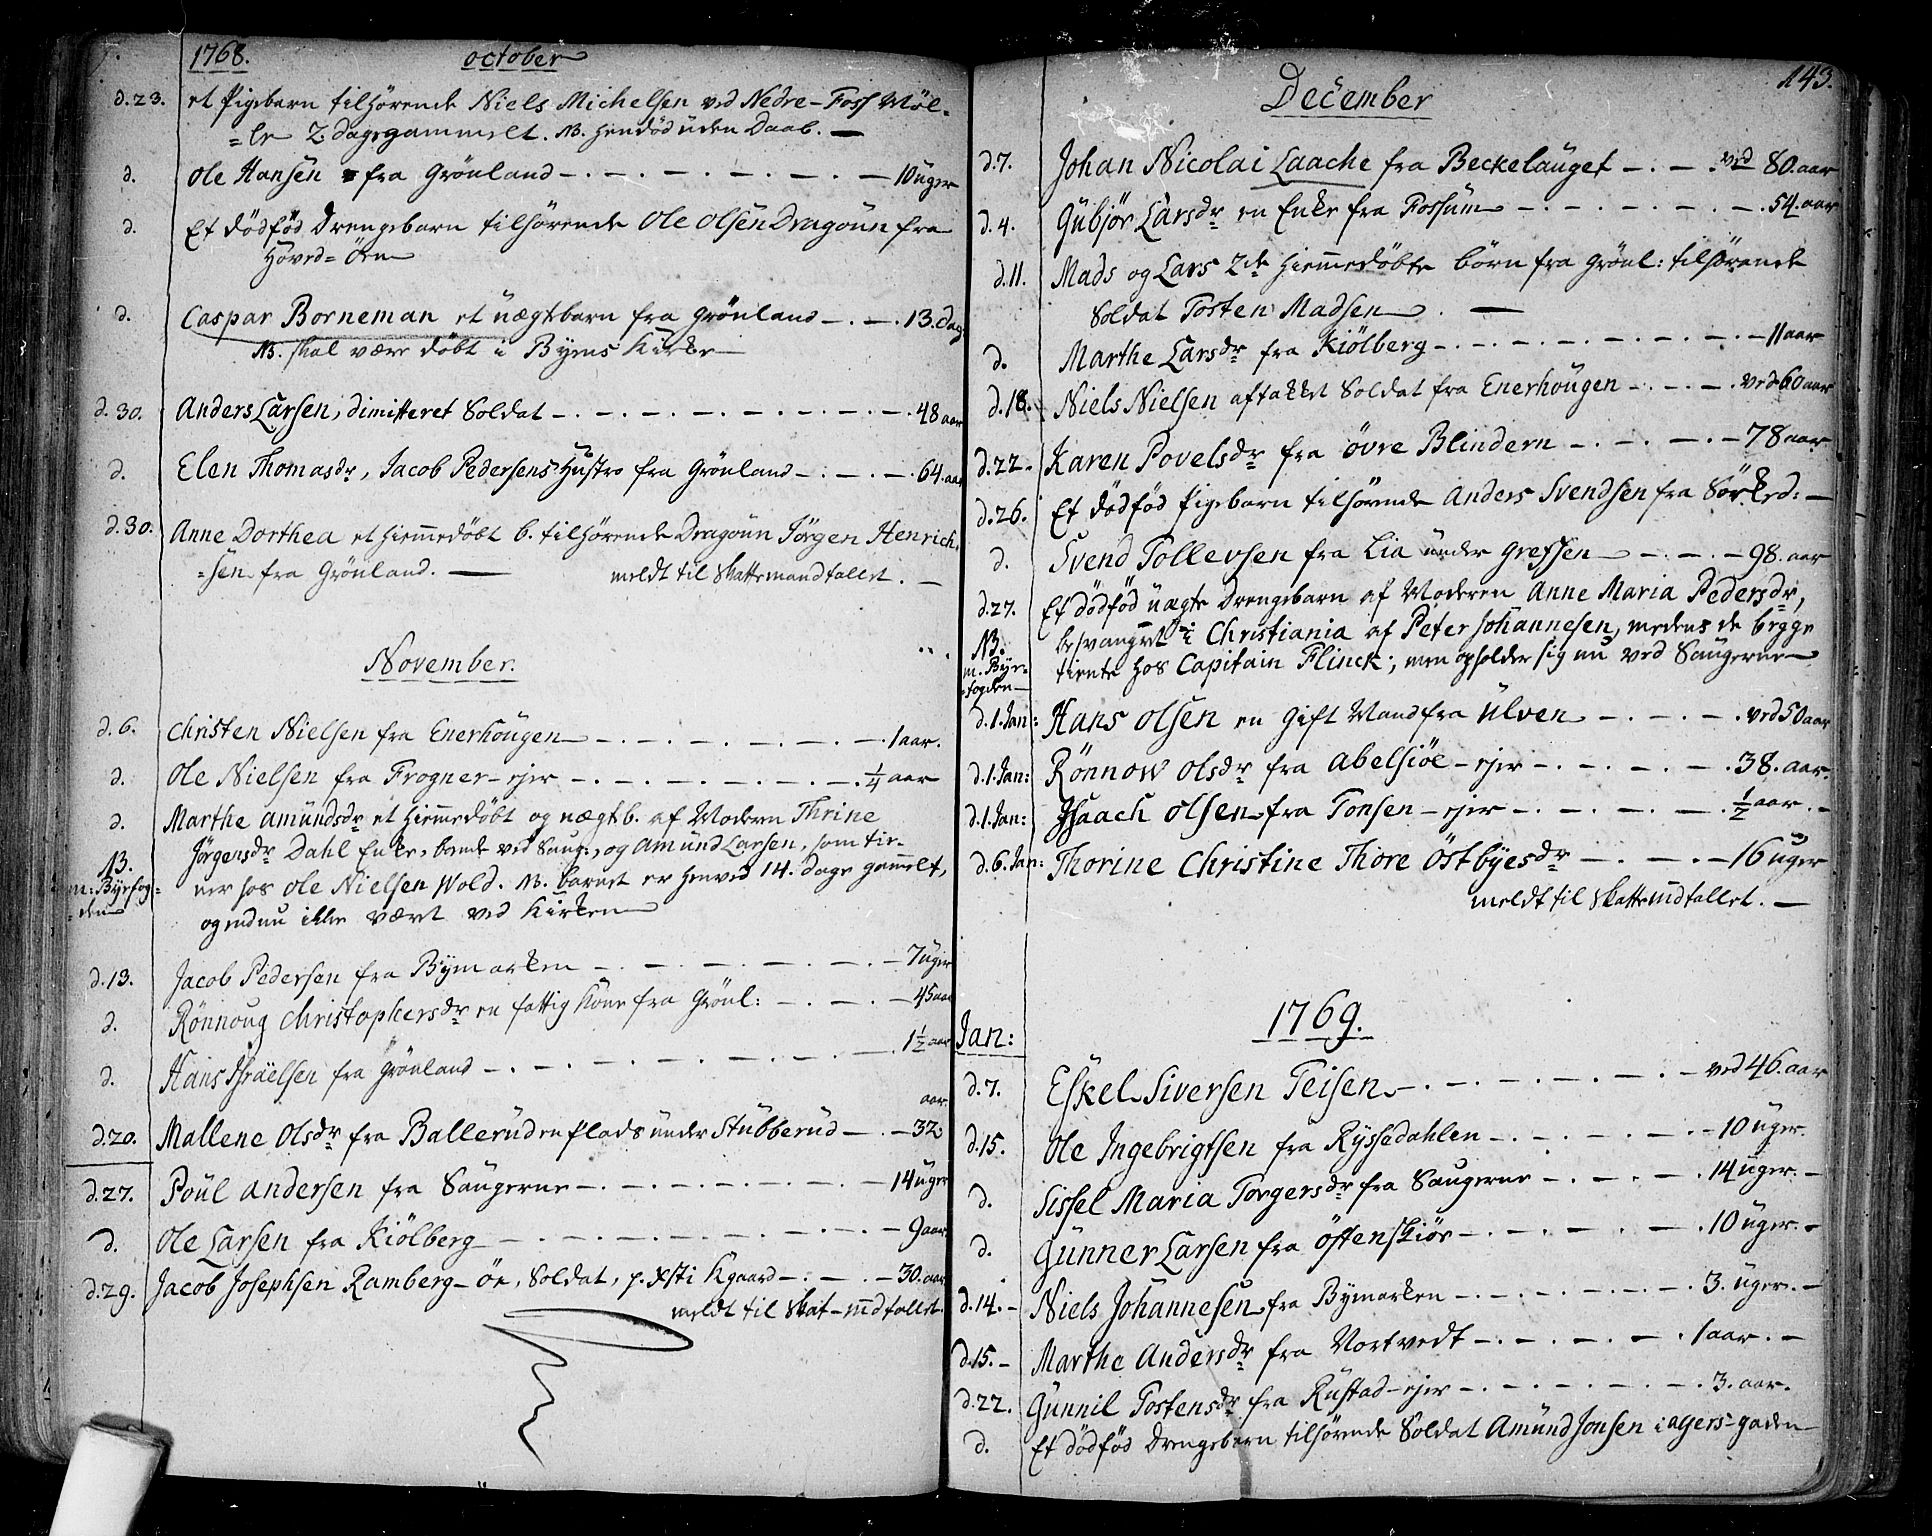 1768. october
d.23. et Pigebarn tilhörende Niels Michelsen ved Nedre-Foss Möl-
=le 2 dage gammelt. NB. hendöd uden Daab. —
d. Ole Hansen fra Grönland 10 uger
d. Et dödfød Drengebarn tilhörende Ole Olsen Dragoun fra
Hoved=Öen
d. Caspar Borneman et uægtebarn fra Grönland 13. dag
NB. skal være döbt i Byens Kirke
d. 30. Anders Larsen, dimitteret Soldat 48 aar
d. Elen Thomasdr, Jacob Pedersens Hustro fra Grönland 64. aar
d.30. Anne Dorthea et hiemmedöbt b. tilhörende Dragoun Jörgen Henrich-
=sen fra Grönland. — meldt til Skattemandtallet. —
November.
d. 6. Christen Nielsen fra Enerhougen 1 aar.
d. Ole Nielsen fra Frogner-ejer ¼ aar
d. Marthe Amundsdr et hiemmedöbt og uægte b. af Moderen Thrine
Jörgensdr Dahl Enke, bænde ved Saug:, og Amund Larsen, som tie-
13. ner hos Ole Nielsen Wold. NB. barnet er henved 14. dage gammelt,
m. Byefog-
=den og endnu ikke været ved Kirken
d.13. Jacob Pedersen fra Bymarken 7 uger
d. Rönnoug Christophersdr en fattig Kone fra Grönl: 45 aar
d. Hans Israelsen fra Grönland 1½ aar
d.20. Mallene Olsdr fra Ballerud en Plads under Stubberud 32 aar.
d.27. Poul Andersen fra Saugerne 14 uger
d. Ole Larsen fra Kiölberg 9 aar
d.29. Jacob Josephsen Ramberg-öe, Soldat, p. Xsti Kgaard 30. aar
meldt til Skat-mdtallet.
143.
December
d.7. Johan Nicolai Laache fra Beckelauget ved 80. aar
d.4. Gubjör Larsdr en Enke fra Fossum 54. aar
d.11. Mads og Lars 2de hiemmedöbte börn fra Grönl: tilhörende
Soldat Tosten Madsen. —
d. Marthe Larsdr fra Kiölberg 11 aar
d.18. Niels Nielsen aftakket Soldat fra Enerhougen ved 60 aar
d.22. Karen Povelsdr fra övre Blindern 78 aar
d.26. Et dödfød Pigebarn tilhörende Anders Svendsen fra Sörked: —
d. Svend Tollevsen fra Lia under Grefsen 98. aar
d.27. Et dödfød uægte Drengebarn af Moderen Anne Maria Pedersdr,
NB. besvangret i Christiania af Peter Johannesen, medens de begge
m. Bye-
=fogden tiente hos Capitain Flinck; men opholder sig nu ved Saugerne
d.1.Jan: Hans Olsen en gift Mand fra Ulven ved 50 aar
d.1.Jan: Rönnow Olsdr fra Abelsiöe-ejer 38. aar.
d.1.Jan: Isaach Olsen fra Tonsen-ejer ½ aar.
d.6.Jan: Thorine Christine Thore Östbyesdr 16 uger
meldt til Skattemdtallet. —
1769.
Jan:
d.7. Eskel Siversen Teisen ved 46. aar
d.15. Ole Ingebrigtsen fra Ryssedahlen 10 uger.
d. Sissel Maria Torgersdr fra Saugerne 14 uger.
d. Gunner Larsen fra Östenskiöe 10 uger.
d.14. Niels Johannesen fra Bymarken 3. uger.
d.15. Marthe Andersdr fra Vortvedt 1 aar.
d.22. Gunnil Tostensdr fra Rustad-ejer 3. aar.
d. Et dödfød Drengebarn tilhörende Soldat Amund Jonsen i agers-gaden